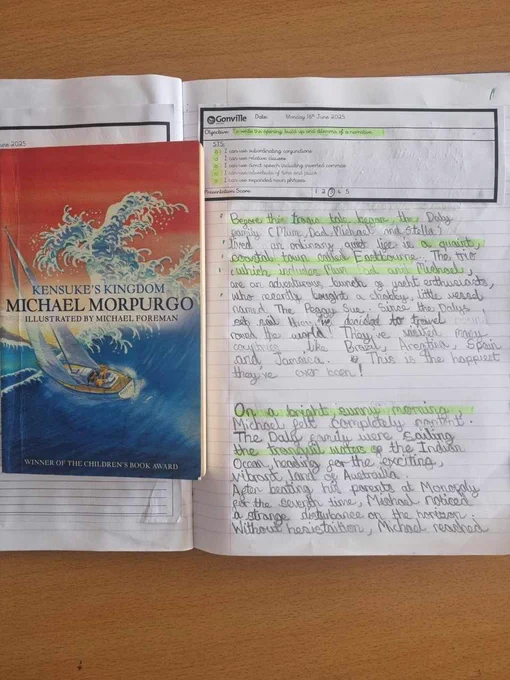 une 2025
KENSUKE'S KINGDOM
MICHAEL MORPURGO
ILLUSTRATED BY MICHAEL FOREMAN
WINNER OF THE CHILDREN'S BOOK AWARD
Gonville Date: Monday 16th June 2025
Objective: To write the opening, build up and dilemma of a narrative
STS:
I can use subordinating conjunctions
I can use relative clauses
I can use direct speech including inverted commas
I can use adverbials of time and place
I can use expanded noun phrases
Presentation Score: 1 2 3 4 5
Before this tragic tale began the Daly
family (Mum, Dad, Michael and Stella)
lived an ordinary quiet life is a quaint,
coastal town called Eastbourne. The trio
(which includes Mum, Dad and Michael)
are an adventurous bunch of yacht enthusiasts,
who recently bought a shabby, little vessel
named The Peggy Sue. Since the Dalys
set sail decided to travel
round the world! They've visited many
countries like Brazil, Argentina, Spain
and Jamaica. This is the happiest
they've ever been!
On a bright, sunny morning,
Michael felt completely
The Daly family were sailing
the tranquil waters of the Indian
Ocean, heading for the exciting,
vibrant land of Australia.
After beating his parents at Monopoly
for the seventh time, Michael noticed
a strange disturbance on the horizon.
Without hesistaition, Michael reached